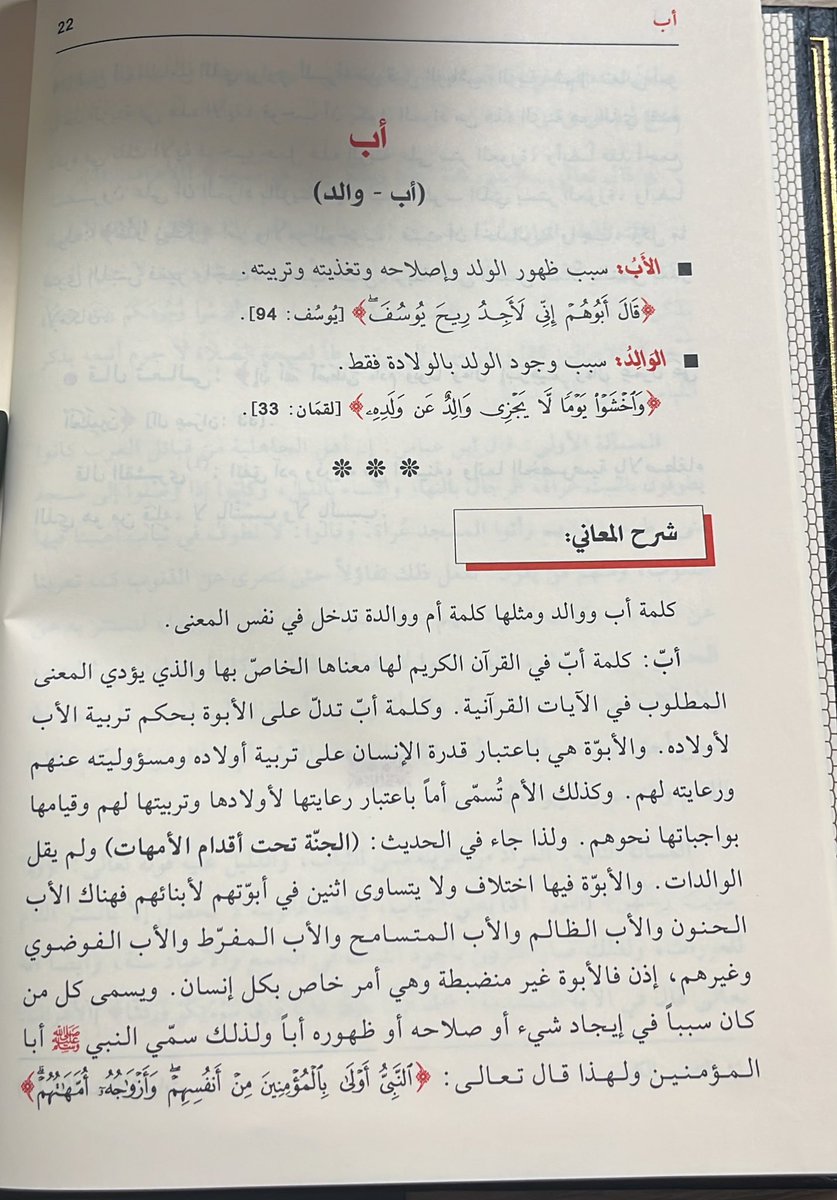 أب
22
أب
(أب - والد)
■ الأَبُ: سبب ظهور الولد وإصلاحه وتغذيته وتربيته.
﴿قَالَ أَبُوهُمْ إِنِّي لَأَجِدُ رِيحَ يُوسُفَ﴾ [يُوسُف: 94].
■ الوَالِدُ: سبب وجود الولد بالولادة فقط.
﴿وَاخْشَوْا يَوْمًا لَّا يَجْزِي وَالِدٌ عَن وَلَدِهِ﴾ [لقمَان: 33].
❊ ❊ ❊
شرح المعاني:
كلمة أب ووالد ومثلها كلمة أم ووالدة تدخل في نفس المعنى.
أبّ: كلمة أبّ في القرآن الكريم لها معناها الخاصّ بها والذي يؤدي المعنى
المطلوب في الآيات القرآنية. وكلمة أبّ تدلّ على الأبوة بحكم تربية الأب
لأولاده. والأبوّة هي باعتبار قدرة الإنسان على تربية أولاده ومسؤوليته عنهم
ورعايته لهم. وكذلك الأم تُسمّى أماً باعتبار رعايتها لأولادها وتربيتها لهم وقيامها
بواجباتها نحوهم. ولذا جاء في الحديث: (الجنّة تحت أقدام الأمهات) ولم يقل
الوالدات. والأبوّة فيها اختلاف ولا يتساوى اثنين في أبوّتهم لأبنائهم فهناك الأب
الحنون والأب الظالم والأب المتسامح والأب المفرّط والأب الفوضوي
وغيرهم، إذن فالأبوة غير منضبطة وهي أمر خاص بكل إنسان. ويسمى كل من
كان سبباً في إيجاد شيء أو صلاحه أو ظهوره أباً ولذلك سمّي النبي ﷺ أبا
المؤمنين ولهذا قال تعالى: ﴿النَّبِيُّ أَوْلَى بِالْمُؤْمِنِينَ مِنْ أَنفُسِهِمْ وَأَزْوَاجُهُ أُمَّهَاتُهُمْ﴾